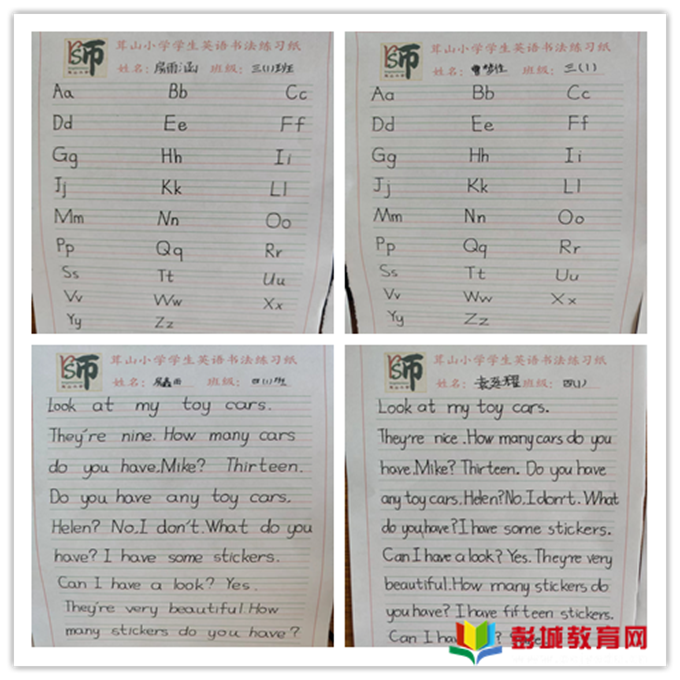 茸山小学学生英语书法练习纸
姓名: 房雨涵 班级: 三(1)班
Aa Bb Cc
Dd Ee Ff
Gg Hh Ii
Jj Kk Ll
Mm Nn Oo
Pp Qq Rr
Ss Tt Uu
Vv Ww Xx
Yy Zz
茸山小学学生英语书法练习纸
姓名: 班级: 三(1)
Aa Bb Cc
Dd Ee Ff
Gg Hh Ii
Jj Kk Ll
Mm Nn Oo
Pp Qq Rr
Ss Tt Uu
Vv Ww Xx
Yy Zz
茸山小学学生英语书法练习纸
姓名: 班级: 四(1)班
Look at my toy cars.
They're nine. How many cars
do you have.Mike? Thirteen.
Do you have any toy cars.
Helen? No.I don't.What do you
have? I have some stickers.
Can I have a look? Yes.
They're very beautiful.How
many stickers do you have?
茸山小学学生英语书法练习纸
姓名: 班级: 四(1)
Look at my toy cars.
They're nice .How many cars do you
have.Mike? Thirteen. Do you have
any toy cars.Helen?No.I don't. What
do you have?I have some stickers.
Can I have a look? Yes. They're very
beautiful.How many stickers do
you have? I have fifteen stickers.
Can I have ?
彭城教育网